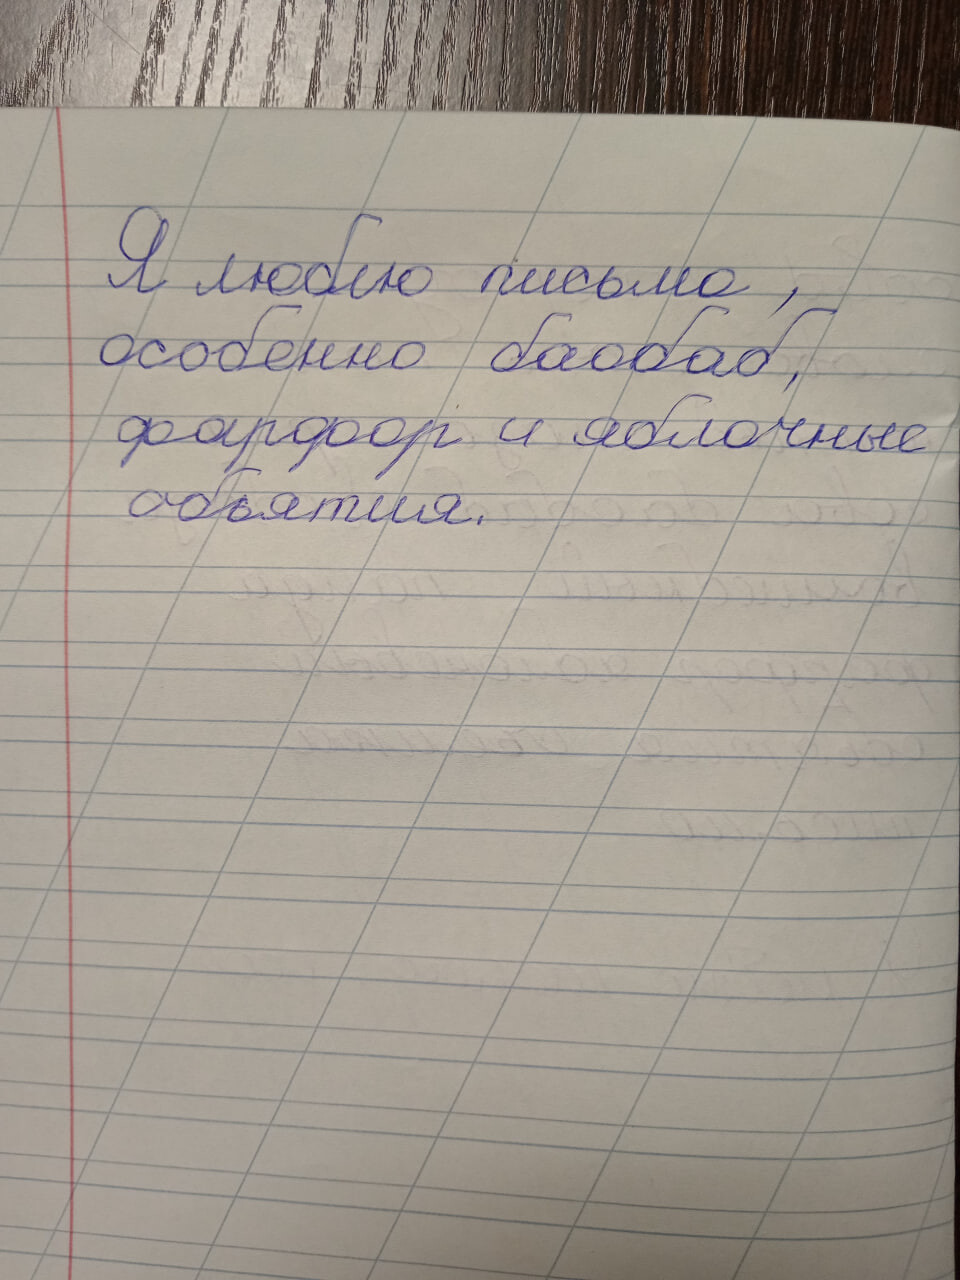 Я люблю письмо,
особенно баобаб,
фарфор и яблочные
объятия.